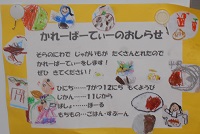 かれーぱーてぃーのおしらせ
そらのにわで じゃがいもが たくさんとれたので
かれーぱーてぃーをします!
ぜひ きてください!
ひにち…7がつ12にち もくようび
じかん…11じから
ばしょ…ほーる
もちもの…ごはん・すぷーん